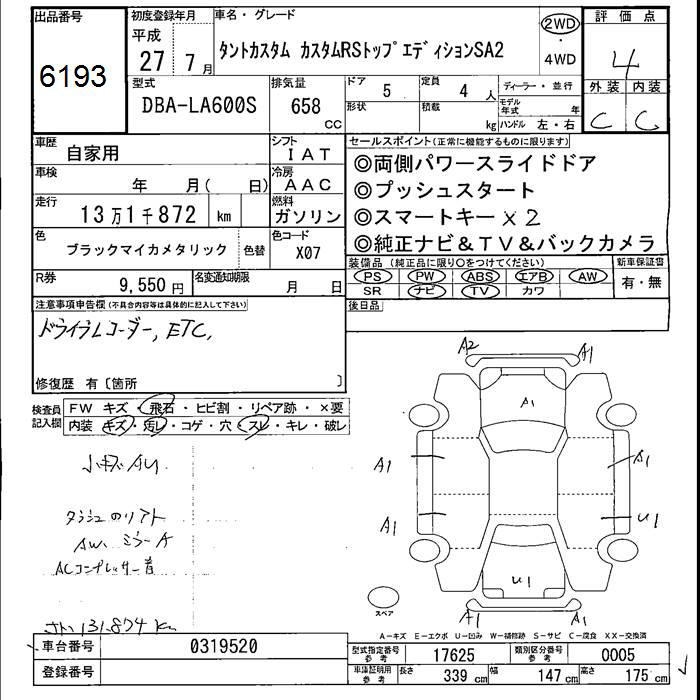 出品番号
6193
初度登録年月
平成
27 7月
車名・グレード
タントカスタム カスタムRSトップエディションSA2
2WD
・
4WD
評価点
4
外装 内装
C C
型式
DBA-LA600S
排気量
658
CC
ドア
5
定員
4 人
形状
積載
kg
ディーラー・並行
モデル年式 年
ハンドル 左・右
車歴
自家用
シフト
IAT
車検
年 月( 日)
冷房
AAC
走行
13万1千872 km
燃料
ガソリン
色
ブラックマイカメタリック
色替
色コード
X07
R券
9,550円
名変通知期限
月 日
セールスポイント(正常に機能するものに限ります)
◎両側パワースライドドア
◎プッシュスタート
◎スマートキー×2
◎純正ナビ&TV&バックカメラ
装備品(純正品に限り○をつけてください)
PS PW ABS エアB AW
SR ナビ TV カワ
新車保証書
有・無
後日品
注意事項申告欄(不具合内容等は具体的に記入して下さい)
ドライブレコーダー, ETC,
修復歴 有〔箇所 〕
検査員記入欄
FW キズ・飛石・ヒビ割・リペア跡・×要
内装 キズ・汚レ・コゲ・穴・スレ・キレ・破レ
小キズAU
AW、ミラーA
ACコンプレッサー音
131.874 km
A2 A1
A1
A1 A1
A1 U1
U1
A1 A1
スペア
A-キズ E-エクボ U-凹み W-補修跡 S-サビ C-腐食 XX-交換済
車台番号
0319520
登録番号
型式指定番号 参考
17625
類別区分番号 参考
0005
車庫証明用 参考
長さ 339 cm
幅 147 cm
高さ 175 cm